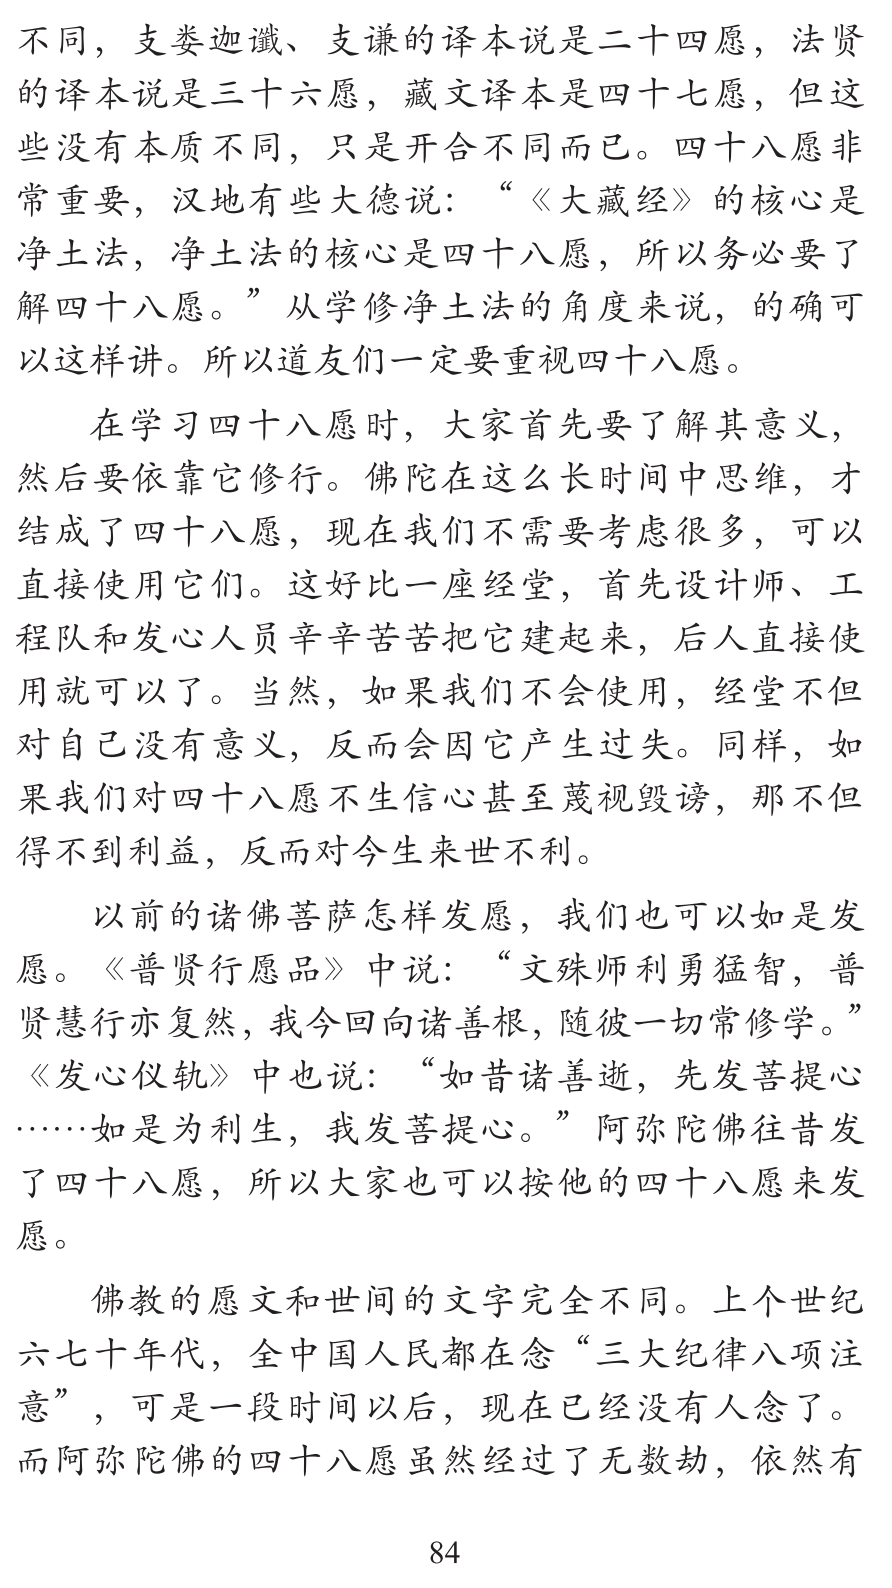 不同，支娄迦谶、支谦的译本说是二十四愿，法贤
的译本说是三十六愿，藏文译本是四十七愿，但这
些没有本质不同，只是开合不同而已。四十八愿非
常重要，汉地有些大德说：“《大藏经》的核心是
净土法，净土法的核心是四十八愿，所以务必要了
解四十八愿。”从学修净土法的角度来说，的确可
以这样讲。所以道友们一定要重视四十八愿。
在学习四十八愿时，大家首先要了解其意义，
然后要依靠它修行。佛陀在这么长时间中思维，才
结成了四十八愿，现在我们不需要考虑很多，可以
直接使用它们。这好比一座经堂，首先设计师、工
程队和发心人员辛辛苦苦把它建起来，后人直接使
用就可以了。当然，如果我们不会使用，经堂不但
对自己没有意义，反而会因它产生过失。同样，如
果我们对四十八愿不生信心甚至蔑视毁谤，那不但
得不到利益，反而对今生来世不利。
以前的诸佛菩萨怎样发愿，我们也可以如是发
愿。《普贤行愿品》中说：“文殊师利勇猛智，普
贤慧行亦复然，我今回向诸善根，随彼一切常修学。”
《发心仪轨》中也说：“如昔诸善逝，先发菩提心
……如是为利生，我发菩提心。”阿弥陀佛往昔发
了四十八愿，所以大家也可以按他的四十八愿来发
愿。
佛教的愿文和世间的文字完全不同。上个世纪
六七十年代，全中国人民都在念“三大纪律八项注
意”，可是一段时间以后，现在已经没有人念了。
而阿弥陀佛的四十八愿虽然经过了无数劫，依然有
84